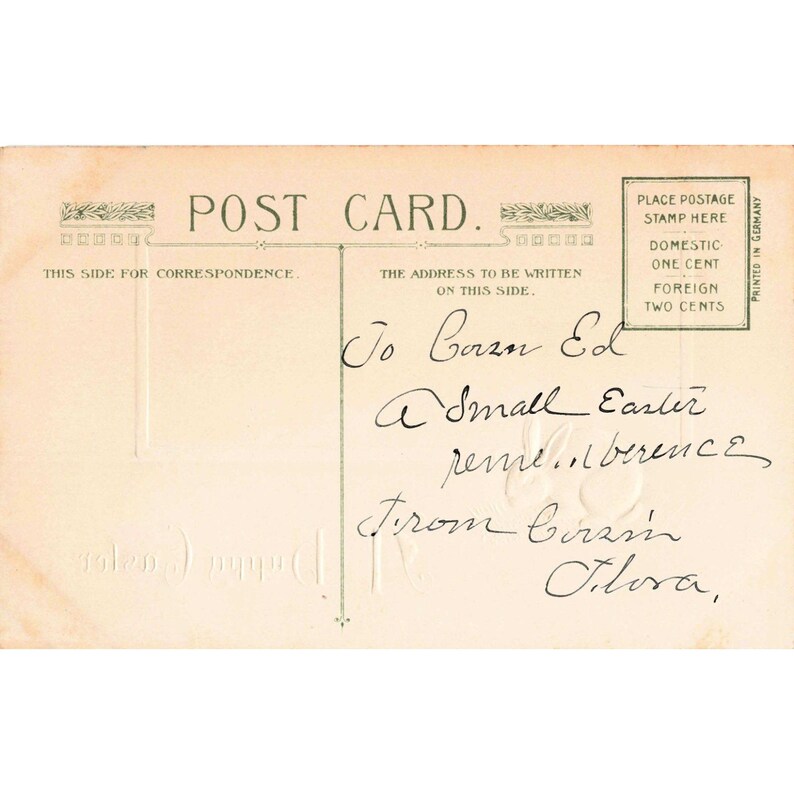 POST CARD.
THIS SIDE FOR CORRESPONDENCE.
THE ADDRESS TO BE WRITTEN
ON THIS SIDE.
PLACE POSTAGE
STAMP HERE
DOMESTIC
ONE CENT
FOREIGN
TWO CENTS
PRINTED IN GERMANY
To Cozn Ed
A Small Easter
rememberence
From Cozin
Flora,
A Happy Easter